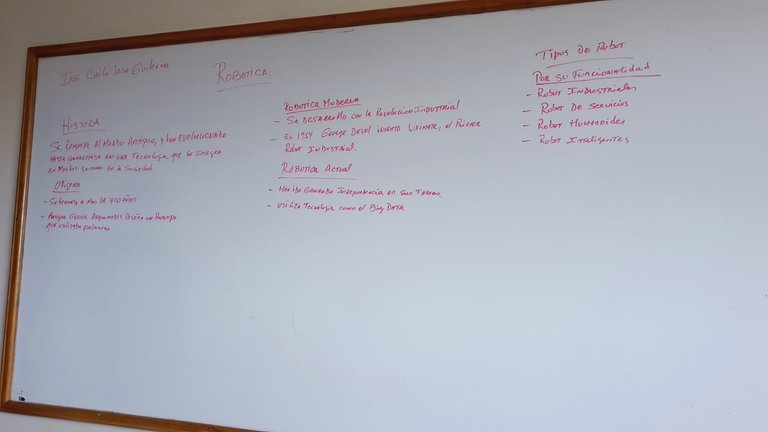 Ing Cirilo Jose Guillermo
ROBOTICA.
HISTORIA
Se Remonta Al Mundo Antiguo, y han EVOLUCIONADO
Hasta convertirse en una Tecnologia que se integra
en Muchos sectores de la Sociedad
ORigen
- Se Remonta a Mas DE 400 AÑOS
- Antigua Grecia Arquimedes Diseño un
que utilizaba palancas
ROBOTICA MODERNA
- Se DESARROLLO con la Revolucion INDUSTRIAL
- En 1954 George Devol invento Unimate, el Primer
Robot INDUSTRIAL.
ROBOTICA ACTUAL
- Han ido Ganando Independencia en sus Tareas.
- utiliza Tecnologia como el Big DATA
Tipos De Robot
POR SU FUNCIONALIDAD
- Robot INDUSTRIALES
- Robot De Servicios
- Robot Humanoides
- Robot Inteligentes